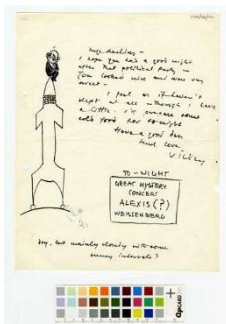 my darling –
I hope you had a good night
after that political party –
You looked nice and were very
sweet –
I feel as if haven't
slept at all – though I have
a little –
Have a good day
love
TO – NIGHT
GREAT MYSTERY
CONCERT
ALEXIS (?)
WEISSENBERG
Dry, but mainly cloudy with some
sunny intervals ?